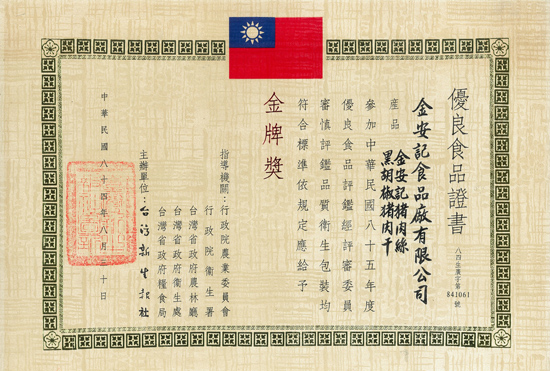 優良食品證書
八四生廣字第
841061
號
金安記食品廠有限公司
產品
金安記豬肉絲
黑胡椒豬肉干
參加中華民國八十五年度
優良食品評鑑經評審委員
審慎評鑑品質衛生包裝均
符合標準依規定應給予
金牌獎
指導機關：行政院農業委員會
行政院衛生署
台灣省政府農林廳
台灣省政府衛生處
台灣省政府糧食局
主辦單位：台灣新生報社
中華民國八十四年八月三十日